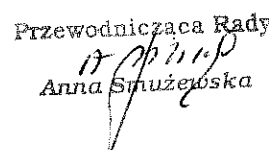 Przewodnicząca Rady
Anna Smużewska